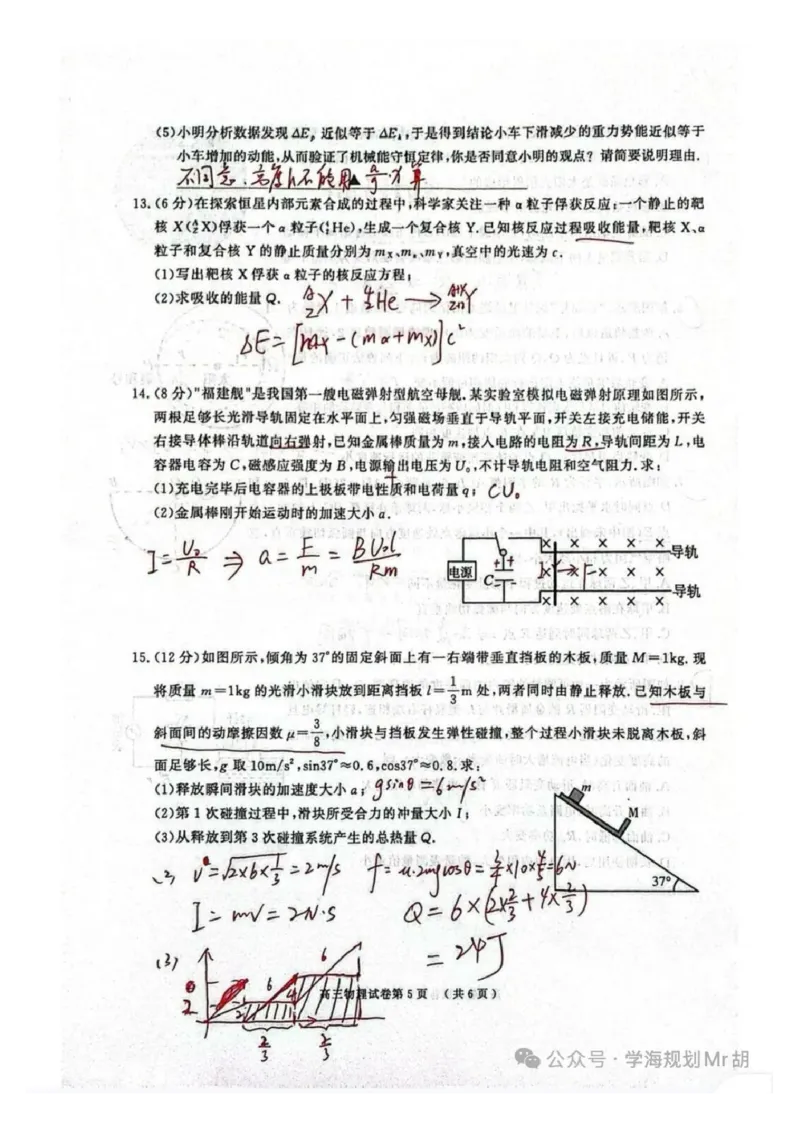 (5)小明分析数据发现ΔEₚ近似等于ΔEₖ,于是得到结论小车下滑减少的重力势能近似等于
小车增加的动能,从而验证了机械能守恒定律,你是否同意小明的观点？请简要说明理由.
不同意,高度h不能用 算
13.(6分)在探索恒星内部元素合成的过程中,科学家关注一种α粒子俘获反应:一个静止的靶
核X(ᴬ_Z X)俘获一个α粒子(⁴₂He),生成一个复合核Y.已知核反应过程吸收能量,靶核X、α
粒子和复合核Y的静止质量分别为m_X、m_α、m_Y,真空中的光速为c.
(1)写出靶核X俘获α粒子的核反应方程;
(2)求吸收的能量Q.
ᴬ_Z X + ⁴₂He → ᴬ⁺⁴_Z+2 Y
ΔE=[m -(mα+mx)]c²
14.(8分)"福建舰"是我国第一艘电磁弹射型航空母舰.某实验室模拟电磁弹射原理如图所示,
两根足够长光滑导轨固定在水平面上,匀强磁场垂直于导轨平面,开关左接充电储能,开关
右接导体棒沿轨道向右弹射,已知金属棒质量为m,接入电路的电阻为R,导轨间距为L,电
容器电容为C,磁感应强度为B,电源输出电压为U₀,不计导轨电阻和空气阻力.求:
(1)充电完毕后电容器的上极板带电性质和电荷量q; + CU₀
(2)金属棒刚开始运动时的加速度大小a.
I=U₀/R ⇒ a=F/m=BU₀L/Rm
电源 C + + F 导轨
导轨
15.(12分)如图所示,倾角为37°的固定斜面上有一右端带垂直挡板的木板,质量M=1kg.现
将质量m=1kg的光滑小滑块放到距离挡板l=1/3 m处,两者同时由静止释放.已知木板与
斜面间的动摩擦因数μ=3/8,小滑块与挡板发生弹性碰撞,整个过程小滑块未脱离木板,斜
面足够长,g取10m/s²,sin37°≈0.6,cos37°≈0.8.求:
(1)释放瞬间滑块的加速度大小a; gsinθ=6m/s²
(2)第1次碰撞过程中,滑块所受合力的冲量大小I;
(3)从释放到第3次碰撞系统产生的总热量Q.
m
M
37°
(2) v=√2×6×1/3=2m/s f=μ·2mgcosθ= ×10×4/5=6N
I=mv=2N·s Q=6×(2×2/3+4×2/3)
=24J
(3) 2 2 6 4 6
2/3 2/3
高三物理试卷第5页 (共6页)
公众号·学海规划Mr胡